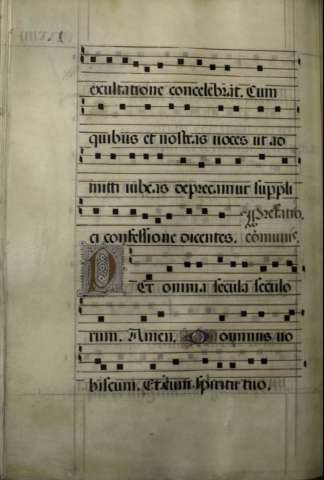 exultatione concelebrat. Cum
quibus et nostras uoces ut ad
mitti iubeas deprecamur suppli
Prefatio
ci confessione dicentes. cōmunis.
Per omnia secula seculo
rum. Amen. Dominus uo
biscum. Et cum spiritu tuo.